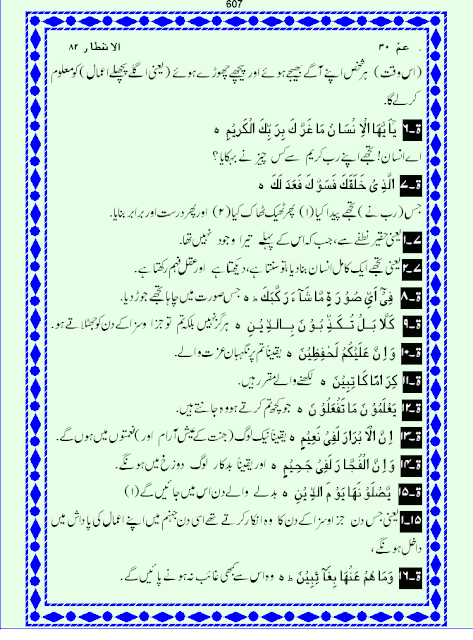 607
عمّ ۳۰ الانفطار ۸۲
(اس وقت) ہر شخص اپنے آگے بھیجے ہوئے اور پیچھے چھوڑے ہوئے (یعنی اگلے پچھلے اعمال) کو معلوم
کر لے گا۔
ق-٦ يٰٓاَيُّهَا الْاِنْسَانُ مَا غَرَّكَ بِرَبِّكَ الْكَرِيْمِ ہ
اے انسان! تجھے اپنے رب کریم سے کس چیز نے بہکایا؟
ق-۷ الَّذِيْ خَلَقَكَ فَسَوّٰكَ فَعَدَلَكَ ہ
جس (رب نے) تجھے پیدا کیا(۱) پھر ٹھیک ٹھاک کیا(۲) اور پھر درست اور برابر بنایا۔
۷-۱ یعنی حقیر نطفے سے، جب کہ اس کے پہلے تیرا وجود نہیں تھا۔
۷-۲ یعنی تجھے ایک کامل انسان بنا دیا، تو سنتا ہے، دیکھتا ہے اور عقل فہم رکھتا ہے۔
ق-۸ فِيْٓ اَيِّ صُوْرَةٍ مَّا شَآءَ رَكَّبَكَ ط ہ جس صورت میں چاہا تجھے جوڑ دیا۔
ق-۹ كَلَّا بَلْ تُكَذِّبُوْنَ بِالدِّيْنِ ہ ہرگز نہیں بلکہ تم تو جزا و سزا کے دن کو جھٹلاتے ہو۔
ق-۱۰ وَاِنَّ عَلَيْكُمْ لَحٰفِظِيْنَ ہ یقیناً تم پر نگہبان عزت والے۔
ق-۱۱ كِرَامًا كَاتِبِيْنَ ہ لکھنے والے مقرر ہیں۔
ق-۱۲ يَعْلَمُوْنَ مَا تَفْعَلُوْنَ ہ جو کچھ تم کرتے ہو وہ جانتے ہیں۔
ق-۱۳ اِنَّ الْاَبْرَارَ لَفِيْ نَعِيْمٍ ہ یقیناً نیک لوگ (جنت کے عیش آرام اور) نعمتوں میں ہوں گے۔
ق-۱۴ وَاِنَّ الْفُجَّارَ لَفِيْ جَحِيْمٍ ہ اور یقیناً بدکار لوگ دوزخ میں ہونگے۔
ق-۱۵ يَّصْلَوْنَهَا يَوْمَ الدِّيْنِ ہ بدلے والے دن اس میں جائیں گے(۱)
۱۵-۱ یعنی جس دن جزا و سزا کے دن کا وہ انکار کرتے تھے اسی دن جہنم میں اپنے اعمال کی پاداش میں
داخل ہونگے،
ق-۱٦ وَمَا هُمْ عَنْهَا بِغَآئِبِيْنَ ط ہ وہ اس سے کبھی غائب نہ ہونے پائیں گے۔